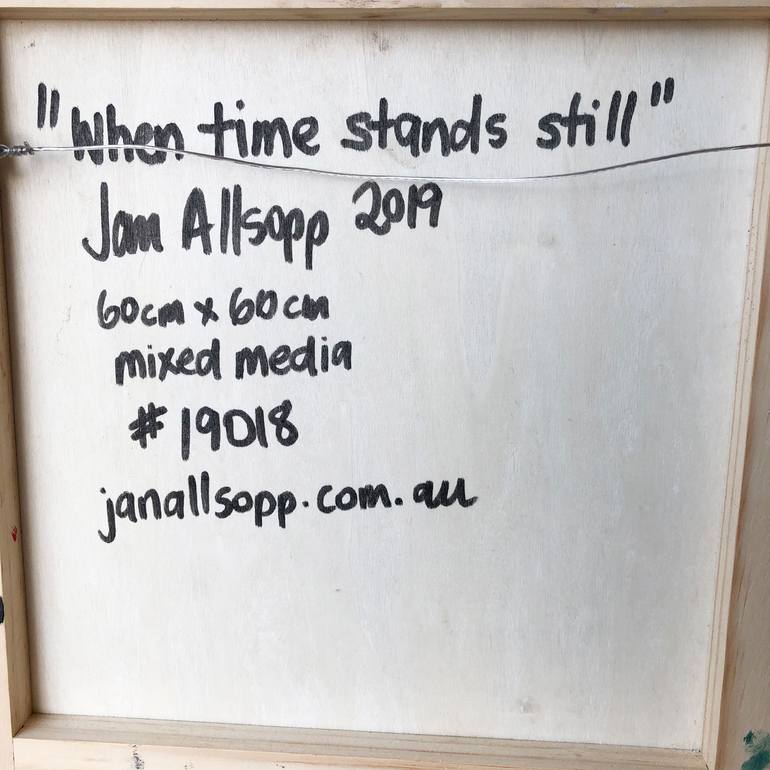 "When time stands still"
Jan Allsopp 2019
60cm x 60cm
mixed media
#19018
janallsopp.com.au